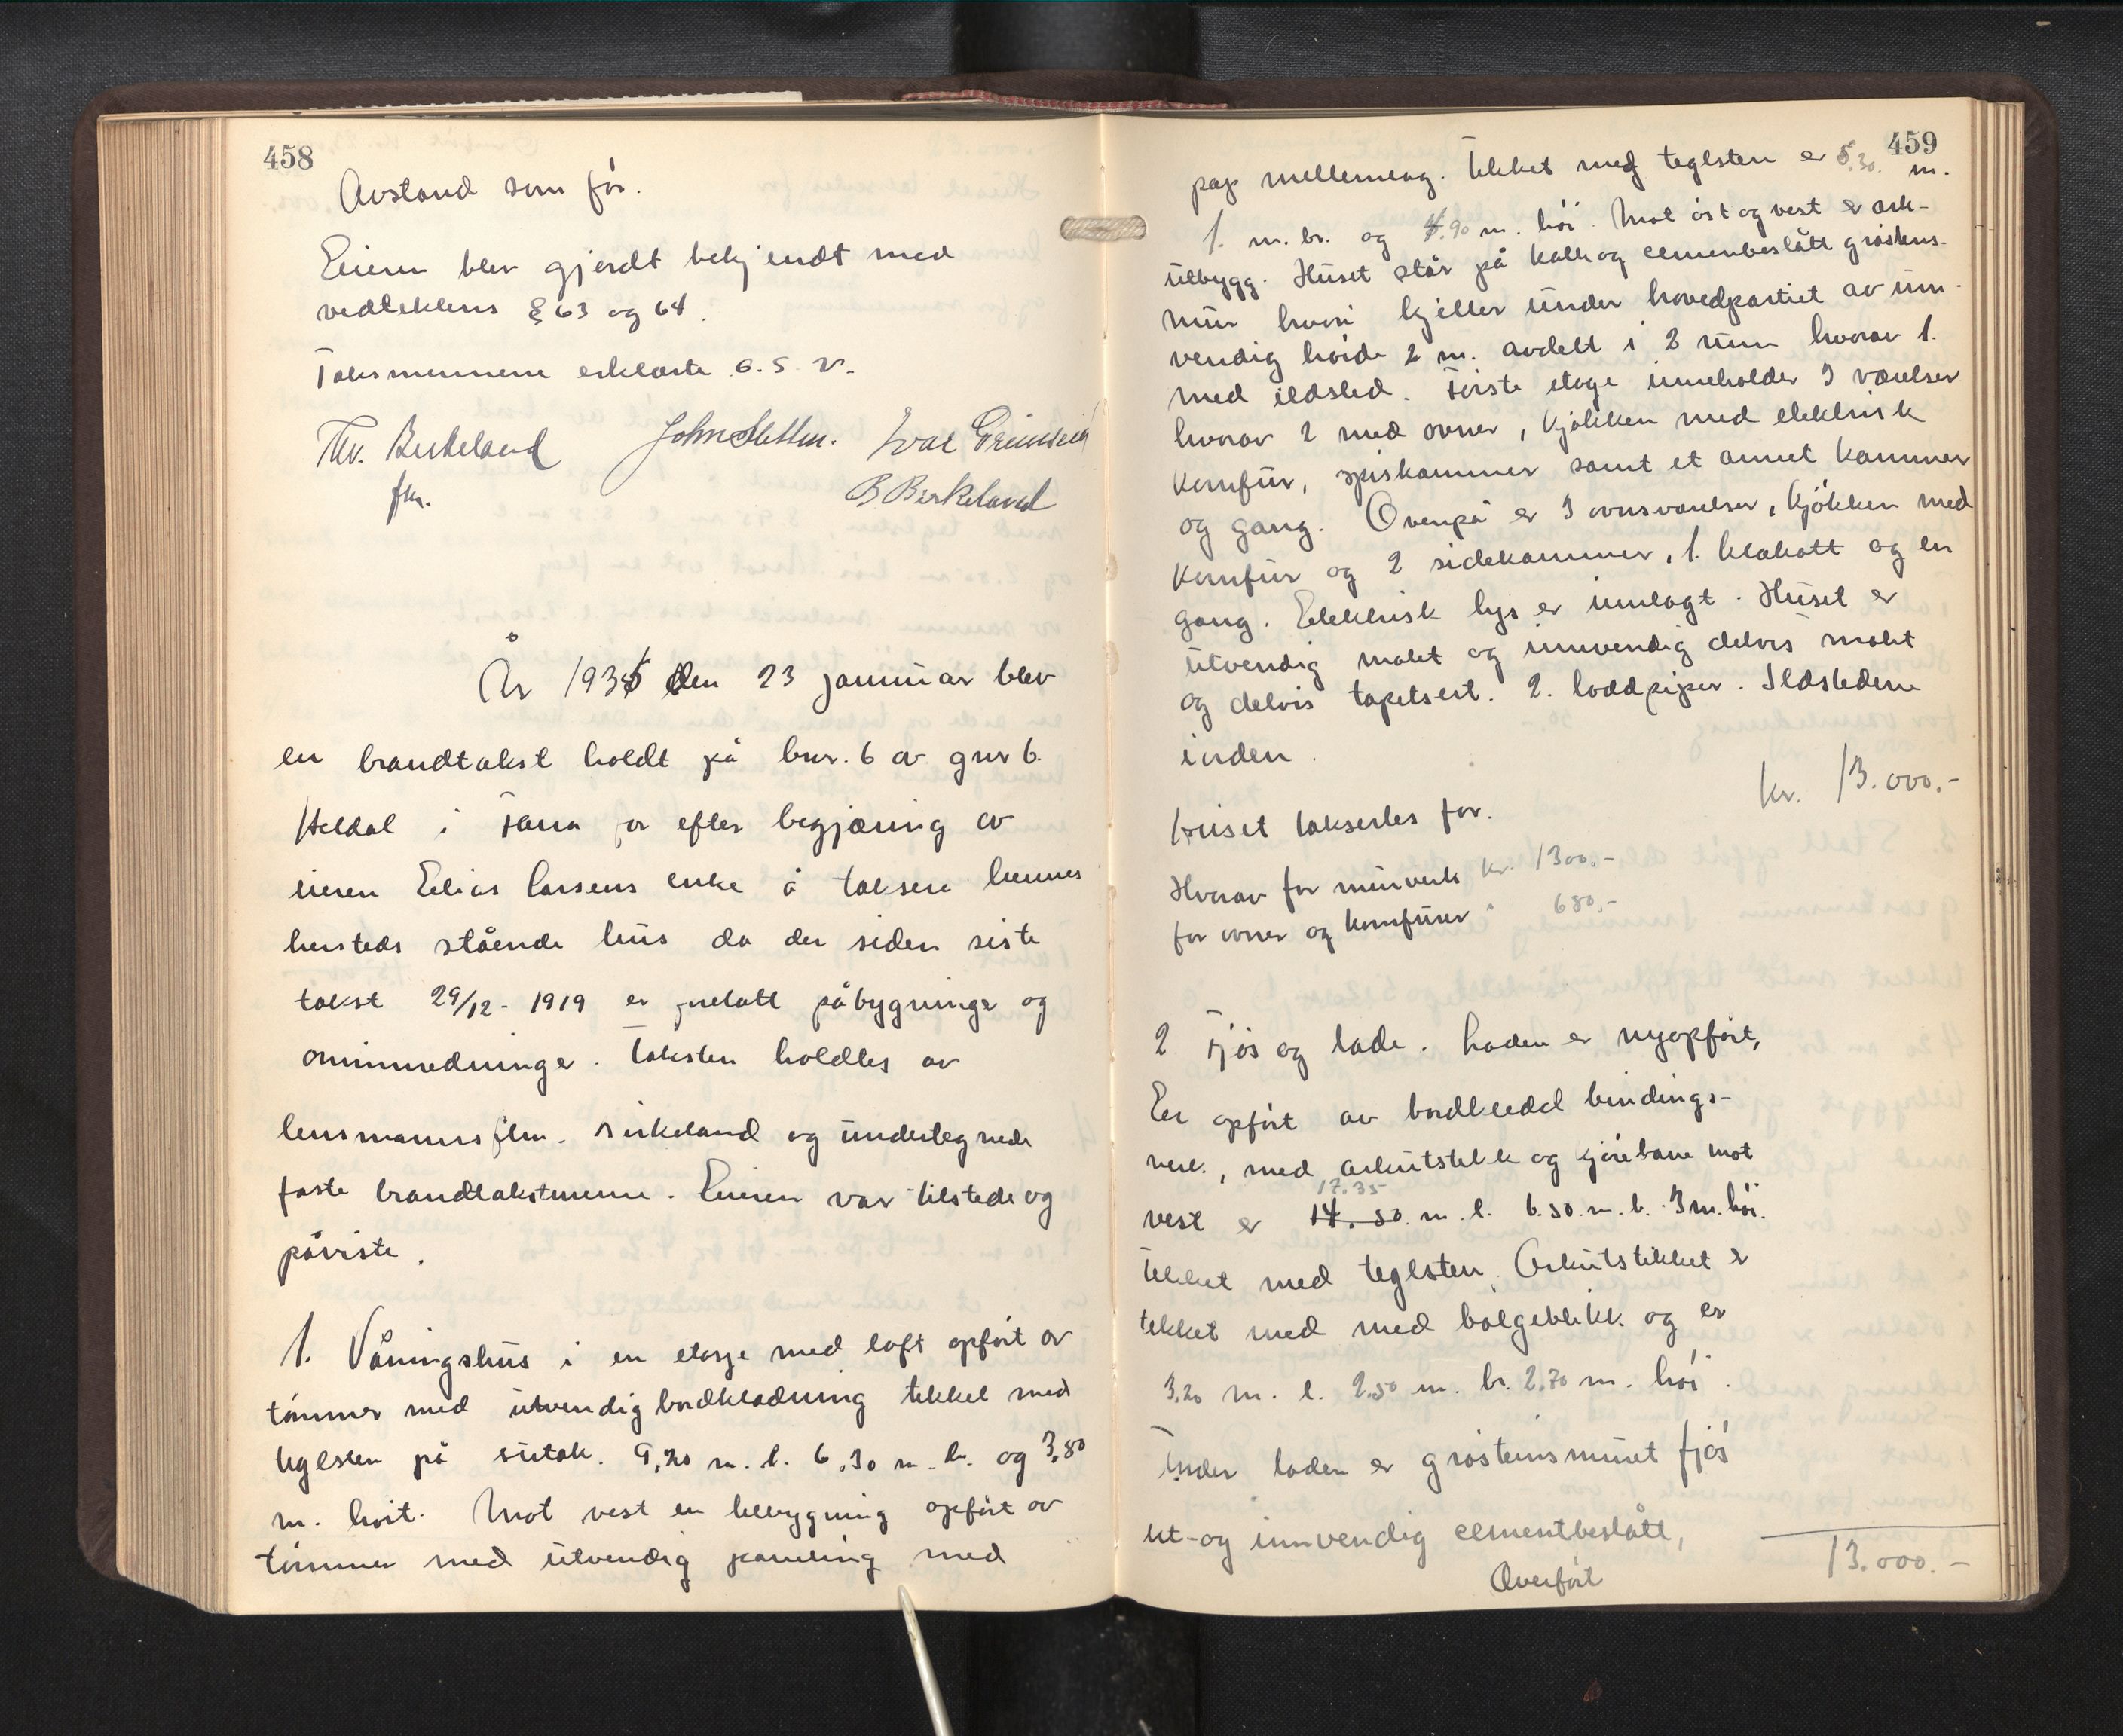 458
Avstand som før.
Eieren blev gjordt bekjendt med
vedtektens § 63 og 64.
Taksmennene erklærte o. s. v.
Thv. Birkeland John Sletten. Ivar Grimseid
fm. B Birkeland
År 1935 den 23 januar blev
en brandtakst holdt på bnr. 6 av gnr 6.
Heldal i Fana for efter begjæring av
eieren Elias Larsens enke å taksere hennes
hersteds stående hus da der siden siste
takst 29/12 - 1919 er foretatt påbygninger og
ominnredninger. Taksten holdtes av
lensmannsfm. Birkeland og undertegnede
faste brandtakstmenn. Eieren var tilstede og
påviste.
1. Våningshus i en etasje med loft opført av
tømmer med utvendig bordklædning tekket med
teglsten på sutak. 9,20 m. l. 6,30 m. br. og 3,80
m. høit. Mot vest en tilbygning opført av
tømmer med utvendig paneling med
459
pap mellemlag. Tekket med teglsten er 5.30. m.
l. m. br. og 4.90 m. høi. Mot øst og vest er ark-
utbygg. Huset står på kalk og cementbeslått gråstens-
mur hvori kjeller under hovedpartiet av inn-
vendig høide 2 m. avdelt i 2 rum hvorav 1.
med ildsted. Første etage inneholder 3 værelser
hvorav 2 med ovner, kjøkken med elektrisk
komfur, spiskammer samt et annet kammer
og gang. Ovenpå er 3 ovnsværelser, kjøkken med
komfur og 2 sidekammer, 1. klækott og en
gang. Elektrisk lys er innlagt. Huset er
utvendig malt og innvendig delvis malet
og delvis tapetsert. 2. loddpiper. Ildstedene
iorden.
Huset takseres for. kr. 13.000.-
Hvorav for murverk kr. 1300.-
for ovner og komfurer " 680,-
2 Fjøs og lade. Laden er nyopført,
Er opført av bordkledd bindings-
verk, med arkutstikk og kjørebane mot
17.35
vest er 14.50. m. l. 6.50. m. b. 3 m. høi.
Tekket med teglsten. Arkutstikket er
tekket med med bølgeblikk og er
3,20 m. l. 2,50 m. br. 2,70 m. høi.
Under laden er gråsteinsmuret fjøs
ut- og innvendig cementbeslått,
Overført 13.000.-